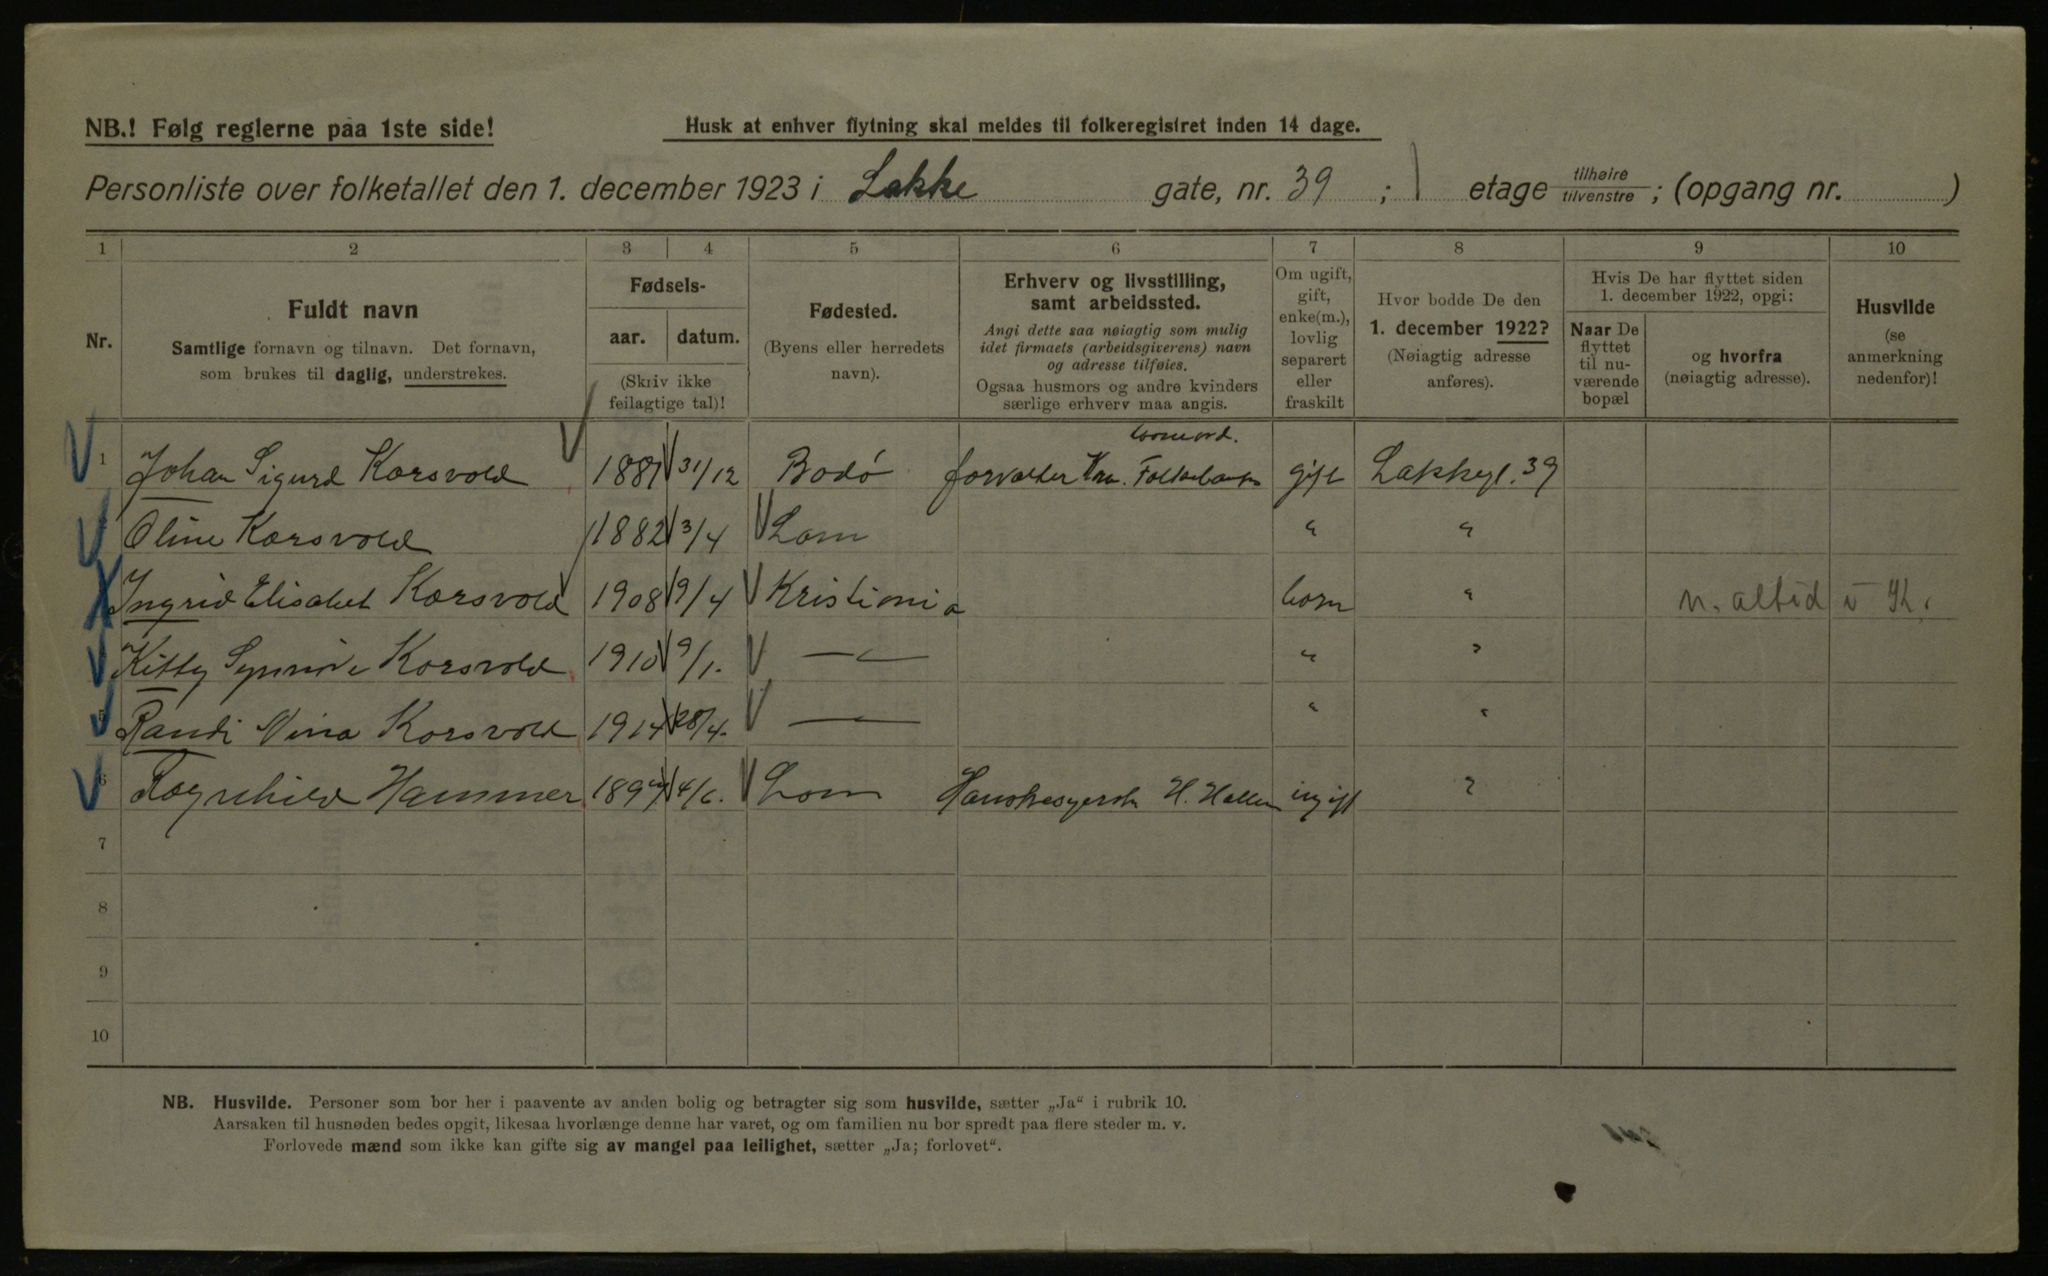 NB.! Følg reglerne paa 1ste side!
Husk at enhver flytning skal meldes til folkeregistret inden 14 dage.
Personliste over folketallet den 1. december 1923 i Lakke gate, nr. 39 ; 1 etage tilhøire tilvenstre ; (opgang nr. )
1 2 3 4 5 6 7 8 9 10
Nr.
Fuldt navn
Samtlige fornavn og tilnavn. Det fornavn,
som brukes til daglig, understrekes.
Fødsels-
aar. datum.
(Skriv ikke
feilagtige tal)!
Fødested.
(Byens eller herredets
navn).
Erhverv og livsstilling,
samt arbeidssted.
Angi dette saa nøiagtig som mulig
idet firmaets (arbeidsgiverens) navn
og adresse tilføies.
Ogsaa husmors og andre kvinders
særlige erhverv maa angis.
Om ugift,
gift,
enke(m.),
lovlig
separert
eller
fraskilt
Hvor bodde De den
1. december 1922?
(Nøiagtig adresse
anføres).
Hvis De har flyttet siden
1. december 1922, opgi:
Naar De
flyttet
til nu-
værende
bopæl
og hvorfra
(nøiagtig adresse).
Husvilde
(se
anmerkning
nedenfor)!
1 Johan Sigurd Korsvold 1881 31/12 Bodó forvalter Kra. Folkebank gift Lakkegt. 39
Oline Korsvold 1882 3/4 Lom " "
Ingrid Elisabet Korsvold 1908 9/4 Kristiania barn " n. altid i Kr.
Kitty Synnöve Korsvold 1910 9/1. — " "
5 Randi Nina Korsvold 1914 28/4. — " "
6 Ragnhild Hammer 1894 4/6. Lom H. Hallen ugift "
7
8
9
10
NB. Husvilde. Personer som bor her i paavente av anden bolig og betragter sig som husvilde, sætter „Ja“ i rubrik 10.
Aarsaken til husnøden bedes opgit, likesaa hvorlænge denne har varet, og om familien nu bor spredt paa flere steder m. v.
Forlovede mænd som ikke kan gifte sig av mangel paa leilighet, sætter „Ja; forlovet“.